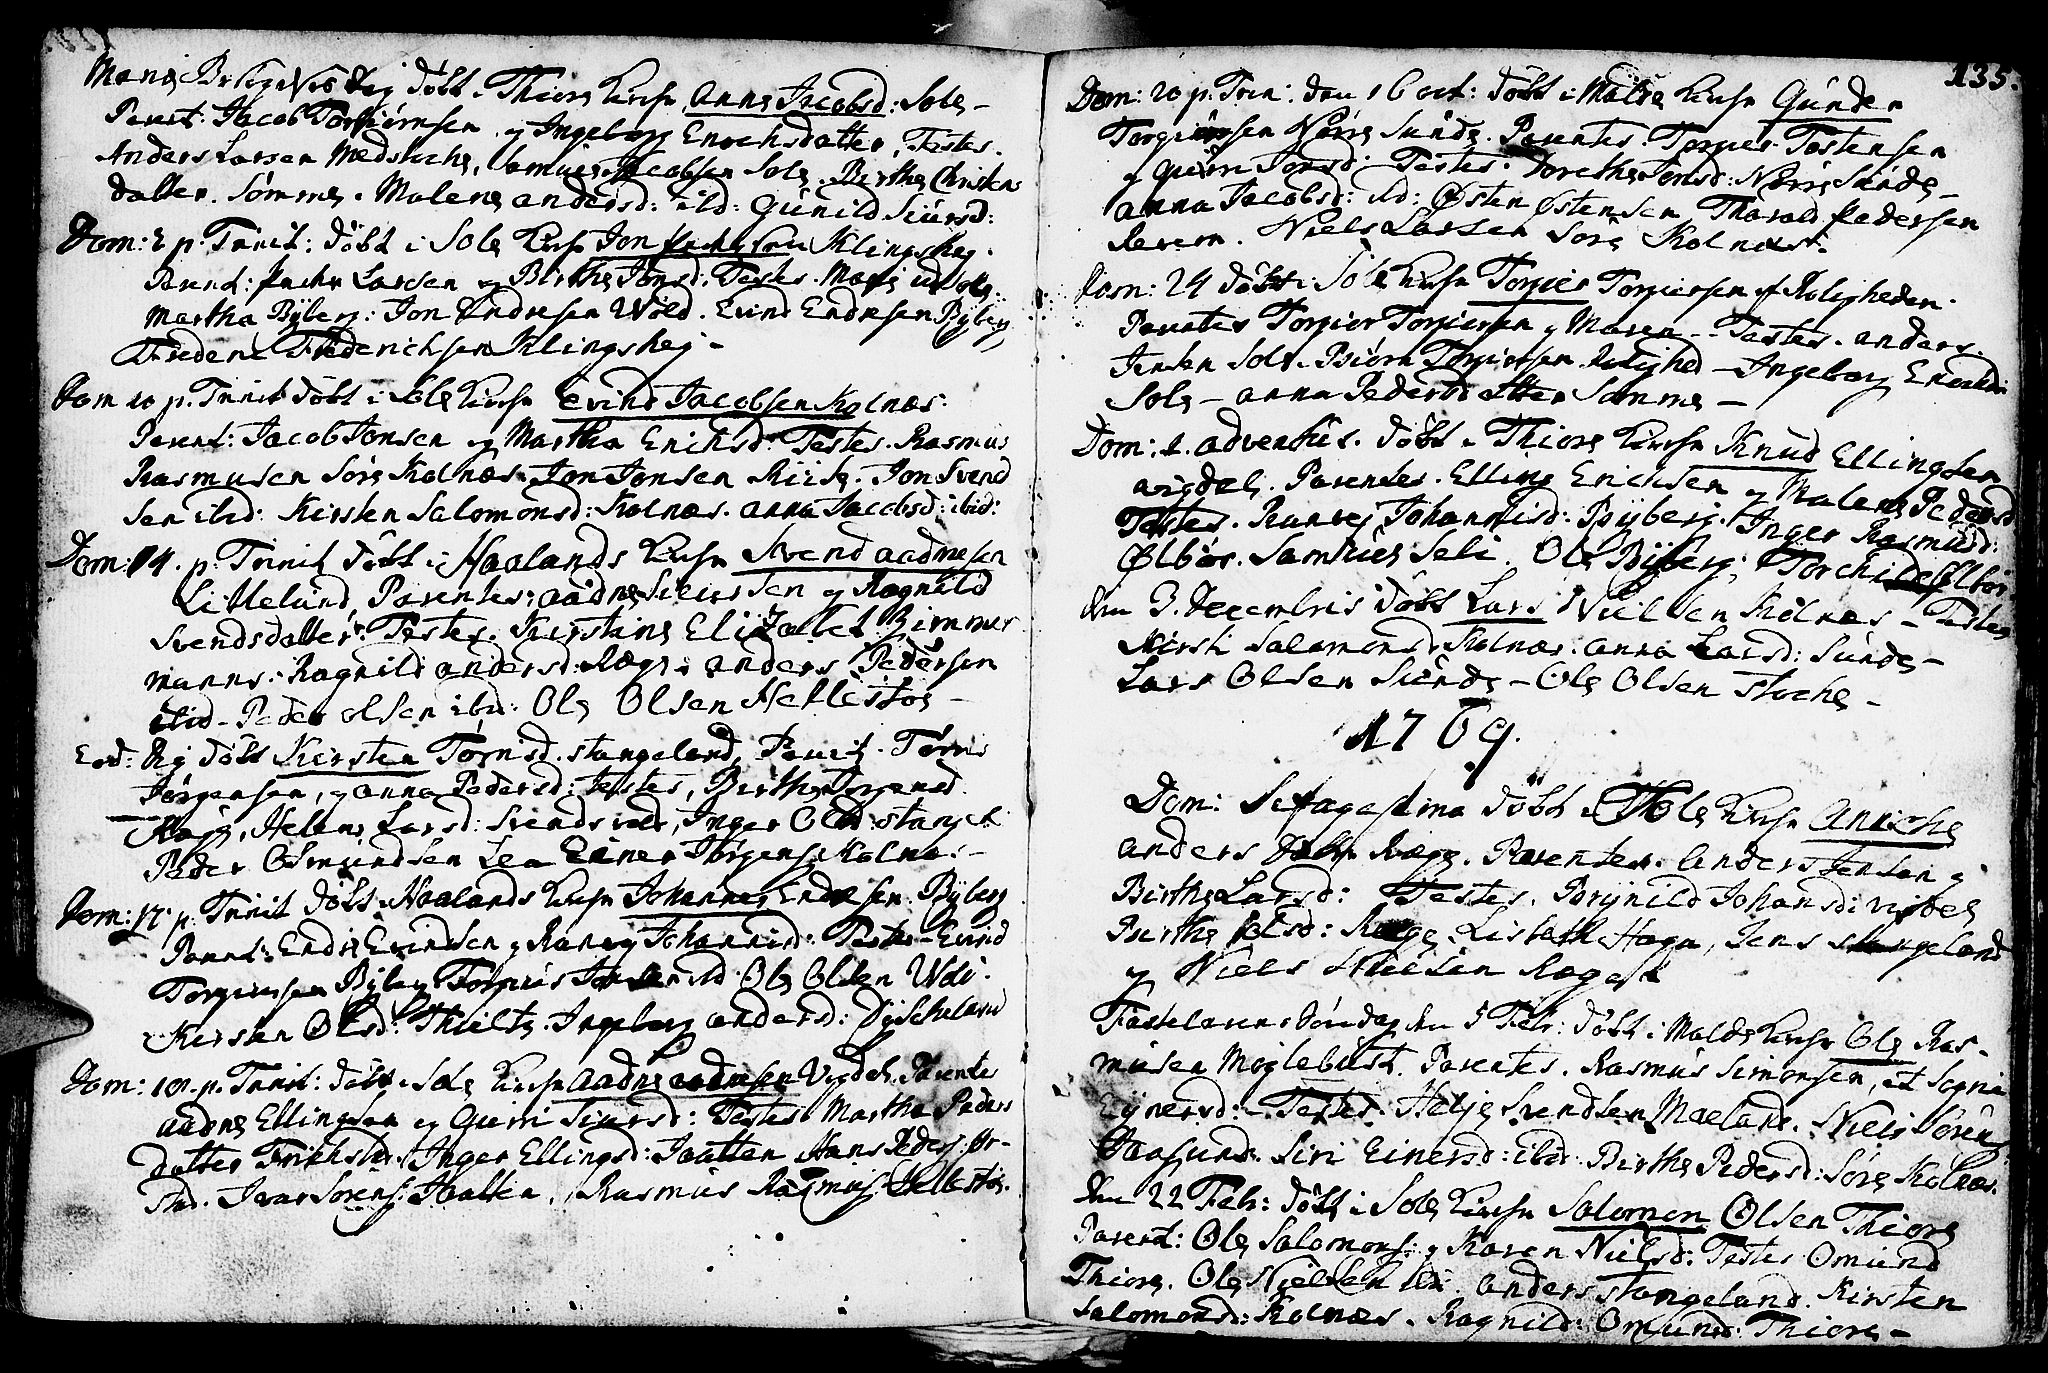 Mariæ Besøgelses dag døbt i Thiore Kirche Anne Jacobsd: Sole –
Parent: Jacob Torbiørnsen og Ingeborg Enochsdatter. Testes.
Anders Larsen Medstoche, Samuel Jacobsen Sole. Birthe Christens
datter. Sømme. Malene Andersd: ibd: Gunild Siursd:
Dom: 2 p. Trinit: døbt i Sole Kirche Jon Klingshej.
Parent: Larsen og Birthe Jonsd: Testes. Sole.
Martha Byberg: Jon Endresen Wold. Evind Endresen Byberg
Friderichsen Klingshej –
Dom 10 p. Trinit døbt i Sole Kirche Evind Jacobsen Kolnæs.
Parent: Jacob Jonsen og Martha Erichsd: Testes. Rasmus
Rasmusen Søre Kolnæs. Jon Jonsen . Jon Svend
sen ibid: Kirsten Salomonsd: Kolnæs. Anna Jacobsd: ibid:
Dom: 14. p. Trinit døbt i Haalands Kirche Svend Aadnesen
Littelund, Parentes: Aadne Siursen og Ragnild
Svendsdatter: Testes. Kirstine Elizabet Zimmer
manns. Ragnild Andersd: Ræge. Anders Pedersen
ibid – Peder Olsen ibd: Ole Olsen Hellestøe –
Eod: døbt Kirsten Tørrisd. Stangeland, Parent. Tørris
Jørgensen, og Anna Pedersd: Testes, Birthe
Helene Larsd: , Inger Olsd: Stangel:
Peder Osmundsen Einer Jørgens: Kolnæs –
Dom: 17. p. Trinit døbt i Haalands Kirche Johannes Endresen Byberg
Parent: Endre Evindsen og Ranveg Johannisd: Testes – Evind
Torgiersen Byberg ibd Ole Olsen
Kirsten Olsd: . Ingeborg Andersd: Dyscheland
Dom: 18. p. Trinit: døbt i Sole Kirche Aadne Aadnesen Vigdel. Parentes
Aadne Ellingsen og Guri Siursd: Testes Martha Peders
datter . Inger Ellingsd: Joatten Hans Peders:
stad. Ivar Sørens: Joatten, Rasmus Rasmus: Hellestøe.
135.
Dom: 20 p. Trin: den 16 oct: døbt i Malde Kirche Gunder
Torgiersen Nørre Sunde. Parentes. Torgier Tostensen
og Guri Jonsd: Testes. Dorethe Jonsd: Nørre Sunde –
Anna Jacobsd: ibd: Østen Østensen, Tharald Pedersen
. Niels Larsen Søre Kolnæs.
Dom: 24 døbt i Sole Kirche Torgier Torgiersen af Roligheden.
Parentes Torgier Torgiersen og Maren – Testes. Anders
Jensen Sole. Biørn Torgiersen Rolighed – Ingeborg Enochsd:
Sole – Anna Pedersdatter Sømme –
Dom: 1. Adventus. døbt i Thiore Kirche Knud Ellingsen
Vigdel. Parentes. Elling Erichsen og Malene Pedersd
Testes. Ranvej Johannisd: Byberg. Inger Rasmusd:
Ølbør. Samuel . Ole Byberg, Ølbør.
den 3. Decembris døbt Lars Nielsen Kolnæs – Testes
Kirsti Salomonsd: Kolnæs. Anna Larsd: Sunde –
Lars Olsen Sunde – Ole Olsen Stoche –
1769.
Dom: Septuagesima døbt i Sole Kirche Anniche
Anders Ræge. Parentes. Anders Jensen og
Birthe Larsd: Testes. Brynild Johansd: Vigdel
Birthe Olsd: Ræge, Lisbeth Haga, Jens Stangeland
og Niels Nielsen Ræge.
Fastelavens Søndag den 5 Febr: døbt i Malde Kirche Ole Ras–
musen Møglebust. Parentes. Rasmus Simonsen, et
Eynersd: – Testes: Helje Svendsen Maeland. Niels Sørens:
. Siri Einersd: ibd: Birthe Pedersd: Søre Kolnæs.
den 22 Febr: døbt i Sole Kirche Salomon Olsen Thiore
Parent: Ole Salomons: og Karen Nielsd: Testes Omund
Thiore. Ole Nielsen ibd: Anders Stangeland. Kirsten
Salomonsd: Kolnæs. Ragnild Omundsd: Thiore –